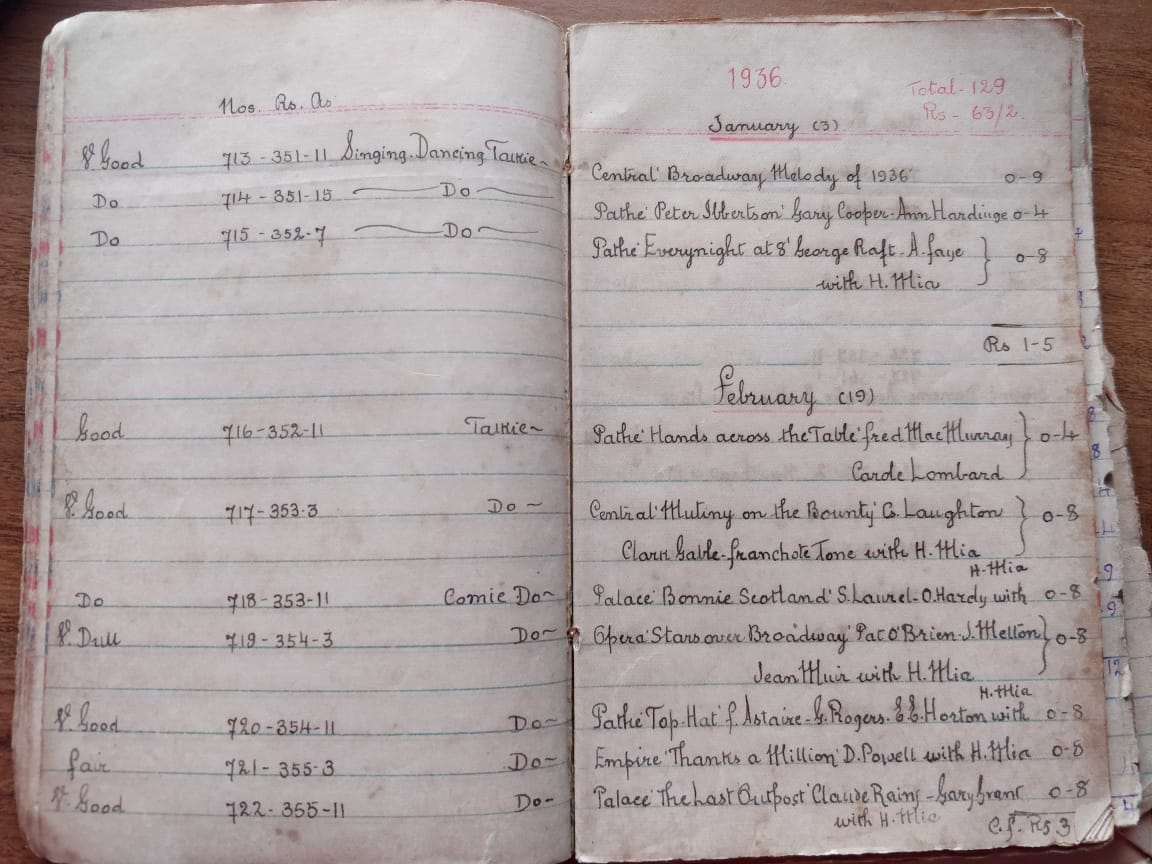 Nos. Rs. As
V. Good 713-351-11 Singing. Dancing Talkie~
Do 714-351-15 Do
Do 715-352-7 Do
Good 716-352-11 Talkie~
V. Good 717-353-3 Do~
Do 718-353-11 Comic Do~
V. Dull 719-354-3 Do~
V. Good 720-354-11 Do~
fair 721-355-3 Do~
V. Good 722-355-11 Do-
1936.
Total-129
Rs - 63/2.
January (3)
Central 'Broadway Melody of 1936' 0-9
Pathé 'Peter Ibbertson' Gary Cooper-Ann Hardinge 0-4
Pathé 'Everynight at 8' George Raft-A. faye } 0-8
with H. Mia
Rs 1-5
February (19)
Pathé 'Hands across the Table' fred Mac Murray } 0-4
Carole Lombard
Central 'Mutiny on the Bounty' C. Laughton } 0-8
Clark Gable-franchote Tone with H. Mia
H. Mia
Palace 'Bonnie Scotland' S. Laurel-O. Hardy with 0-8
Opera 'Stars over Broadway' Pat O'Brien-J. Melton } 0-8
Jean Muir with H. Mia
H. Mia
Pathé 'Top-Hat' f. Astaire-G. Rogers. E.E. Horton with 0-8
Empire 'Thanks a Million' D. Powell with H. Mia 0-8
Palace 'The Last Outpost' Claude Rains-Gary Grant 0-8
with H. Mia
C.f. Rs 3